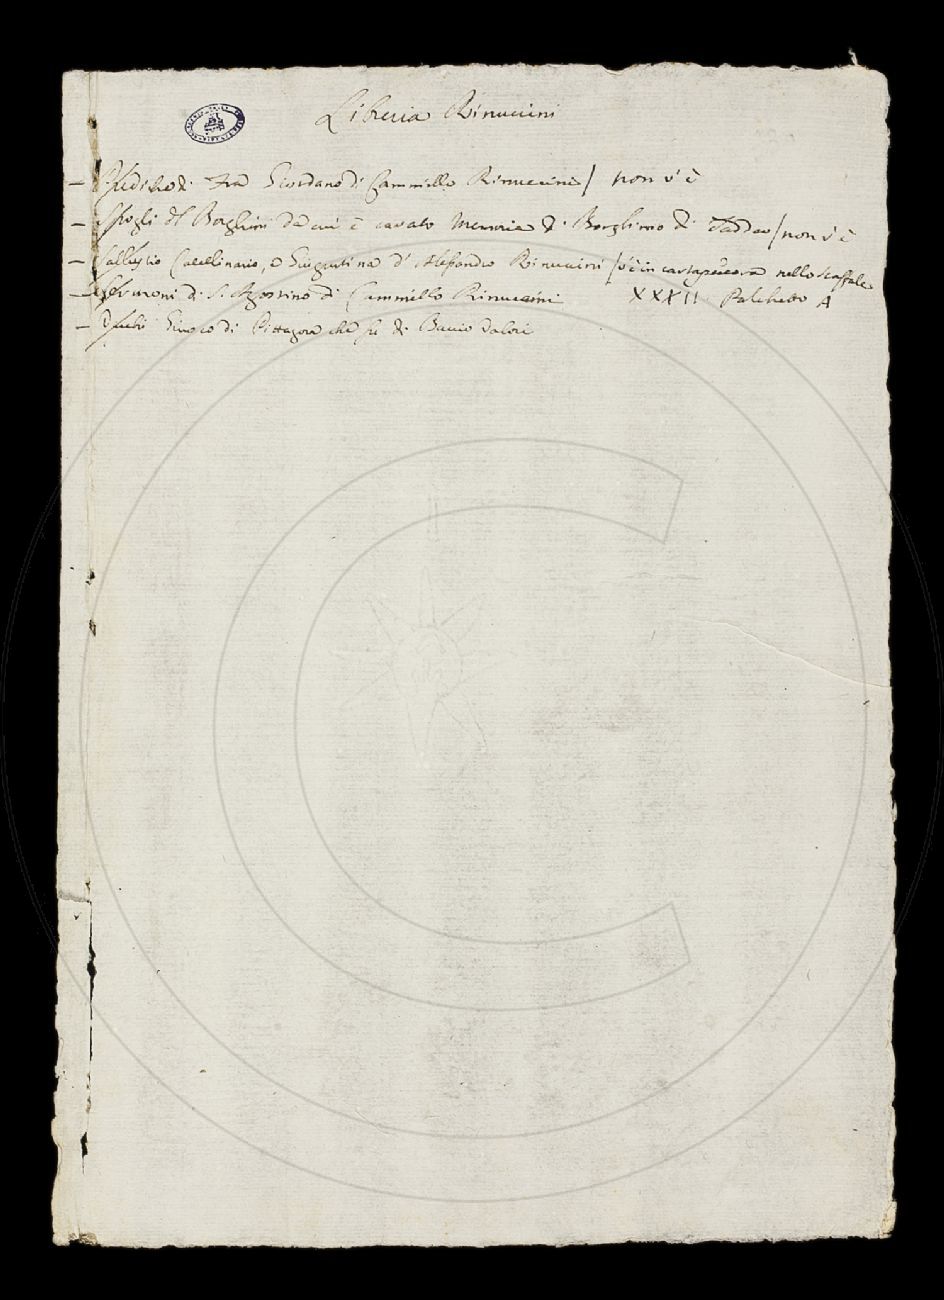 Libreria Rinuccini
– Prediche di Fra Giordano di Cammillo Rinuccini / non v'è
– Spogli del Borghini da cui è cavato Memorie di Borghino di Taddeo / non v'è
– Sallustio Catellinario, e Giugurtina d' Alessandro Rinuccini / v'è in cartapecora nello Scaffale
– Sermoni di S. Agostino di Cammillo Rinuccini XXXII. Palchetto A
– Giuoco di Pittagora che fu di Baccio Valori